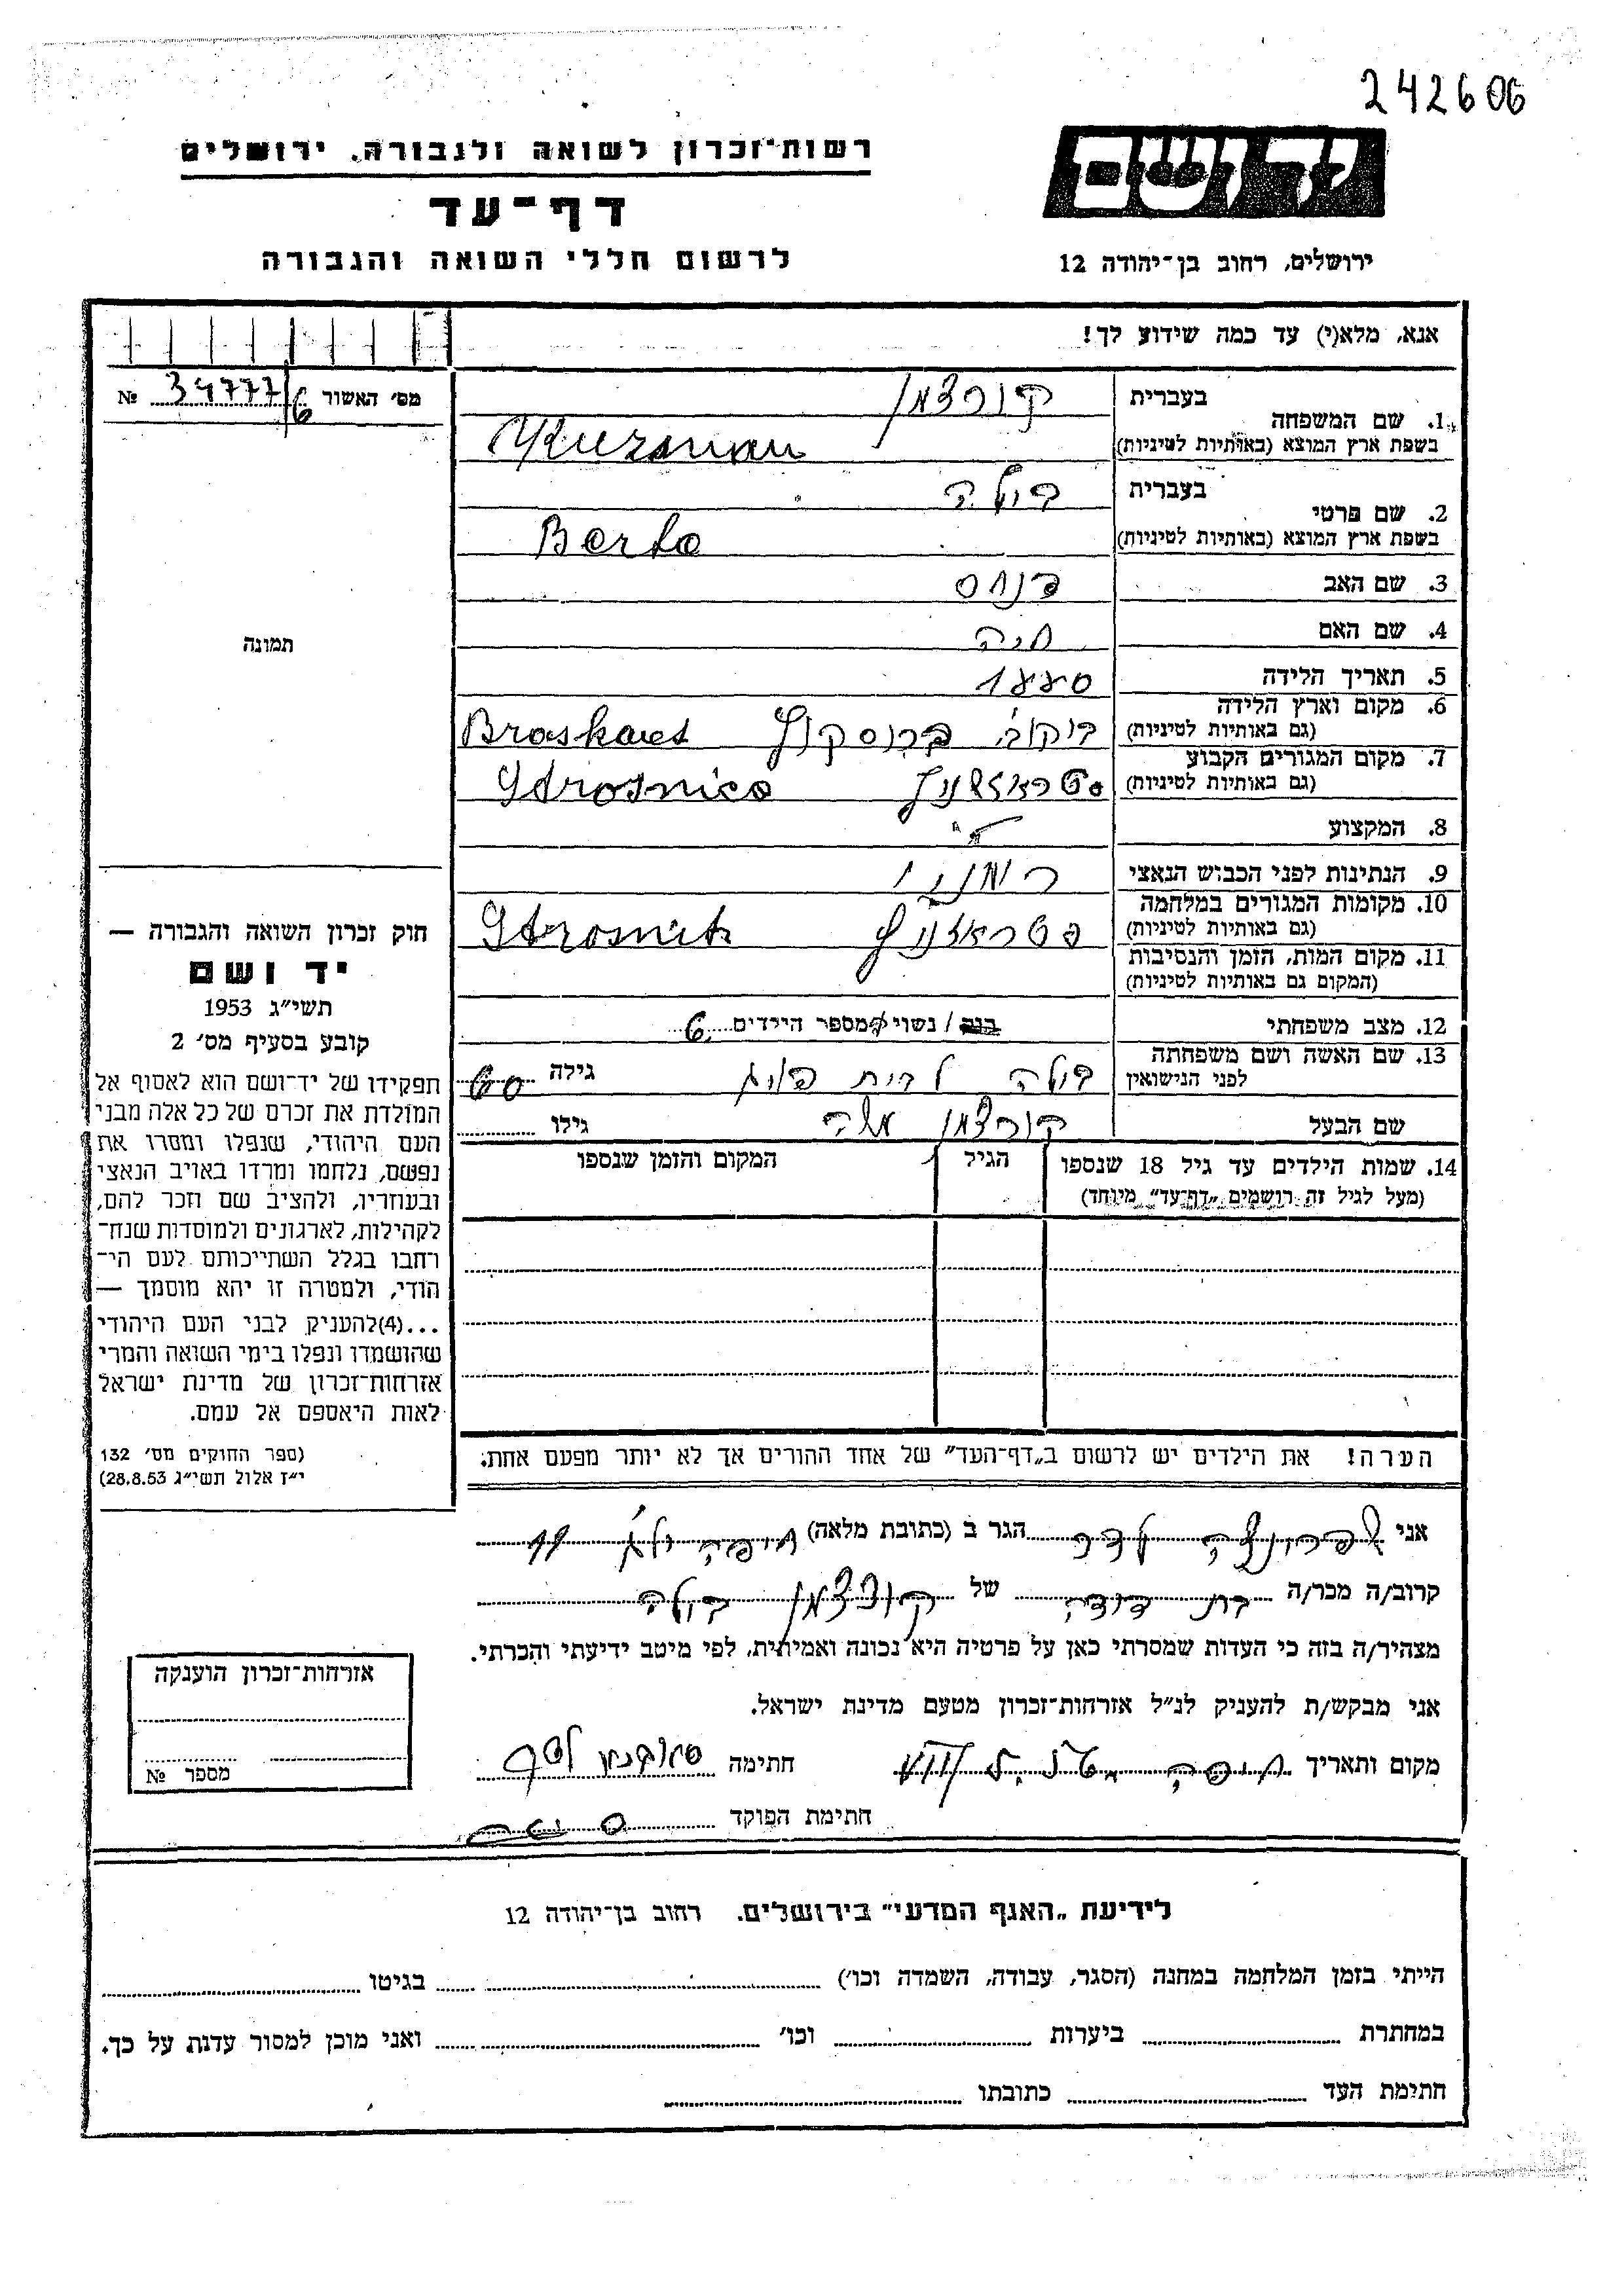 242606
יד ושם
רשות־זכרון לשואה ולגבורה, ירושלים
דף־עד
לרשום חללי השואה והגבורה
ירושלים, רחוב בן־יהודה 12
אנא, מלא(י) עד כמה שידוע לך!
מס׳ האשור 34777/6 №
בעברית קורצמן
1. שם המשפחה
בשפת ארץ המוצא (באותיות לטיניות) Kurzman
בעברית
2. שם פרטי
בשפת ארץ המוצא (באותיות לטיניות) Berta
3. שם האב פנחס
4. שם האם חנה
5. תאריך הלידה 1880
6. מקום וארץ הלידה
(גם באותיות לטיניות) Broskauts
7. מקום המגורים הקבוע
(גם באותיות לטיניות)
8. המקצוע
9. הנתינות לפני הכבוש הנאצי רומני
10. מקומות המגורים במלחמה
(גם באותיות לטיניות)
11. מקום המות, הזמן והנסיבות
(המקום גם באותיות לטיניות)
12. מצב משפחתי רוק / נשוי / מספר הילדים 6
13. שם האשה ושם משפחתה
לפני הנישואין לבית גילה 60
שם הבעל קורצמן משה גילו
14. שמות הילדים עד גיל 18 שנספו
(מעל לגיל זה רושמים „דף־עד״ מיוחד)
הגיל
המקום והזמן שנספו
הערה! את הילדים יש לרשום ב„דף־העד״ של אחד ההורים אך לא יותר מפעם אחת.
תמונה
חוק זכרון השואה והגבורה —
יד ושם
תשי״ג 1953
קובע בסעיף מס׳ 2
תפקידו של יד־ושם הוא לאסוף אל
המולדת את זכרם של כל אלה מבני
העם היהודי, שנפלו ומסרו את
נפשם, נלחמו ומרדו באויב הנאצי
ובעוזריו, ולהציב שם וזכר להם,
לקהילות, לארגונים ולמוסדות שנח־
רחבו בגלל השתייכותם לעם הי־
הודי, ולמטרה זו יהא מוסמך —
...(4)להעניק לבני העם היהודי
שהושמדו ונפלו בימי השואה והמרי
אזרחות־זכרון של מדינת ישראל
לאות היאספם אל עמם.
(ספר החוקים מס׳ 132
י״ז אלול תשי״ג 28.8.53)
אני הגר ב (כתובת מלאה) חיפה
קרוב/ה מכר/ה בת דודה של קורצמן
מצהיר/ה בזה כי העדות שמסרתי כאן על פרטיה היא נכונה ואמיתית, לפי מיטב ידיעתי והכרתי.
אני מבקש/ת להעניק לנ״ל אזרחות־זכרון מטעם מדינת ישראל.
מקום ותאריך חיפה חתימה
חתימת הפוקד
אזרחות־זכרון הוענקה
מספר №
לידיעת „האגף המדעי״ בירושלים. רחוב בן־יהודה 12
הייתי בזמן המלחמה במחנה (הסגר, עבודה, השמדה וכו׳) בגיטו
במחתרת ביערות וכו׳ ואני מוכן למסור עדות על כך.
חתימת העד כתובתו